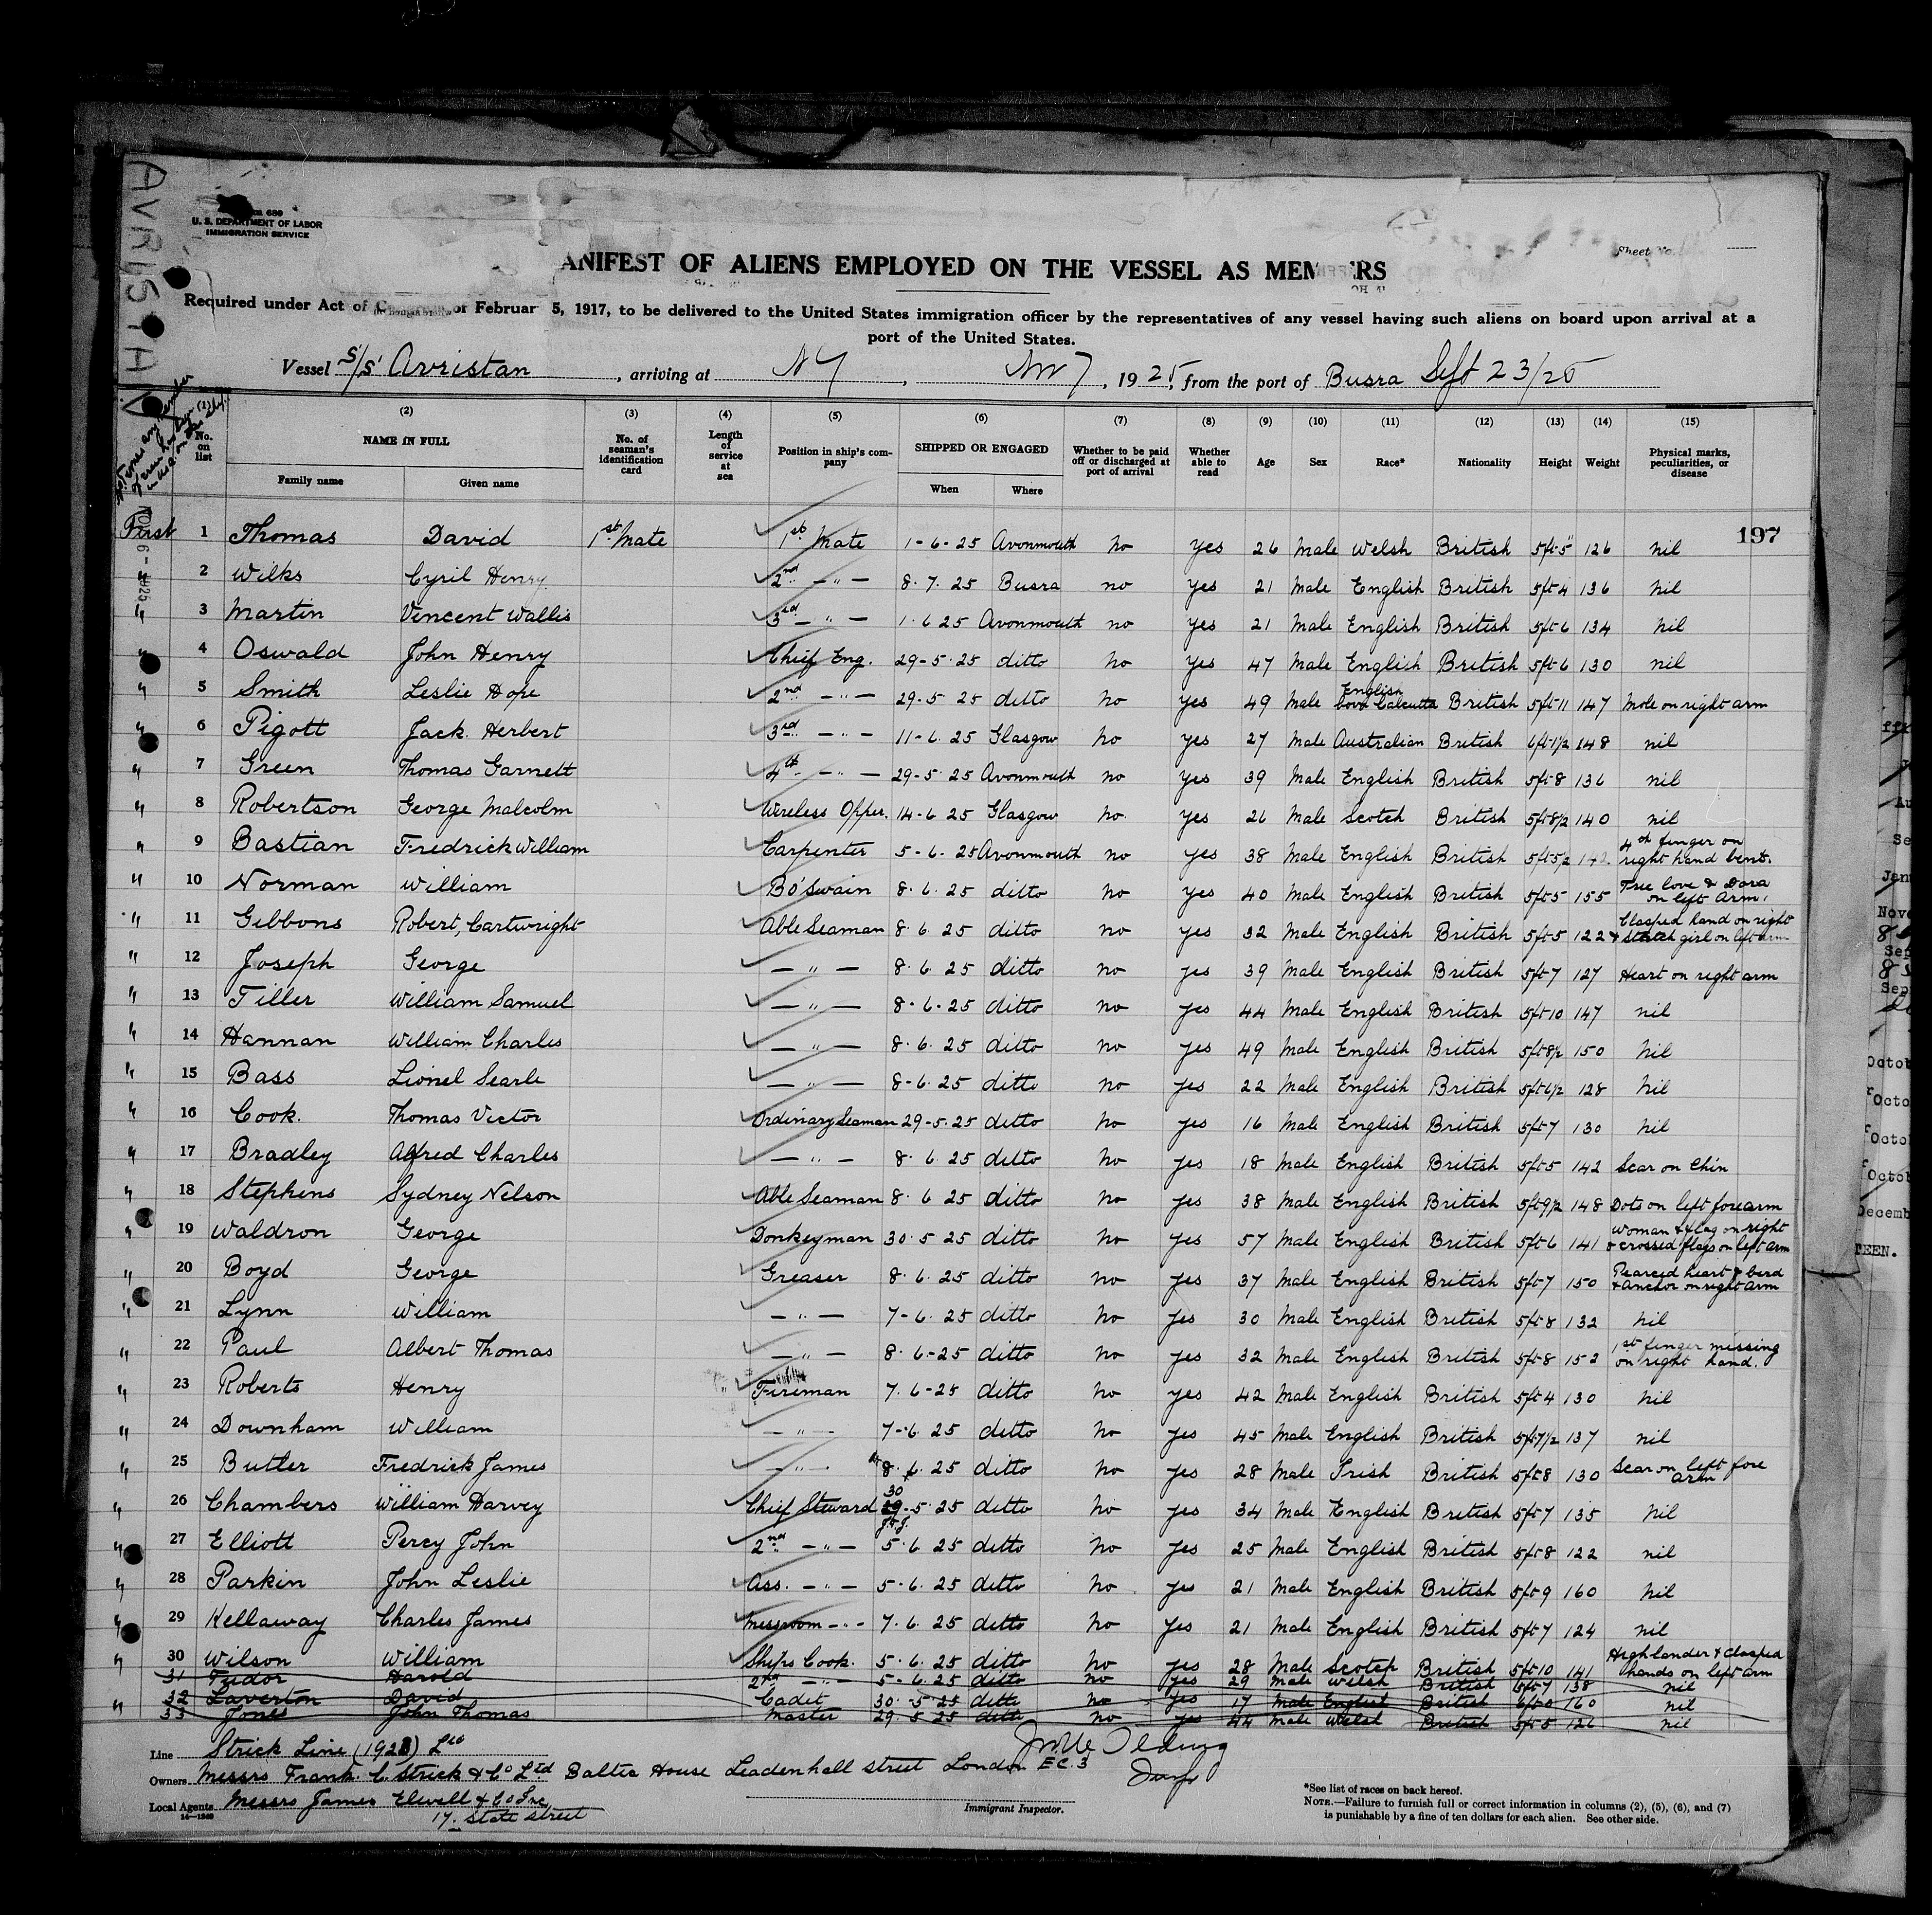 AVRISTAN
680
U. S. DEPARTMENT OF LABOR
IMMIGRATION SERVICE
Sheet No.
ANIFEST OF ALIENS EMPLOYED ON THE VESSEL AS MEM RS
Required under Act of or Februar 5, 1917, to be delivered to the United States immigration officer by the representatives of any vessel having such aliens on board upon arrival at a
port of the United States.
Vessel S/S Avristan, arriving at NY, Nov 7, 1925, from the port of Busra Sept 23/25
(2) (3) (4) (5) (6) (7) (8) (9) (10) (11) (12) (13) (14) (15)
No. on list
NAME IN FULL
Family name Given name
No. of seaman's identification card
Length of service at sea
Position in ship's company
SHIPPED OR ENGAGED
When Where
Whether to be paid off or discharged at port of arrival
Whether able to read
Age Sex Race* Nationality Height Weight
Physical marks, peculiarities, or disease
197
First 1 Thomas David 1st Mate 1st Mate 1-6-25 Avonmouth No yes 26 Male Welsh British 5ft-5" 126 nil
" 2 Wilks Cyril Henry 2nd -"- 8.7.25 Busra no yes 21 Male English British 5ft 4 136 nil
" 3 Martin Vincent Wallis 3rd -"- 1.6 25 Avonmouth no yes 21 Male English British 5ft-6 134 nil
" 4 Oswald John Henry Chief Eng. 29-5-25 ditto No yes 47 Male English British 5ft-6 130 nil
" 5 Smith Leslie Hope 2nd -"- 29-5 25 ditto No yes 49 Male English born Calcutta British 5ft-11 147 Mole on right arm
" 6 Pigott Jack Herbert 3rd -"- 11-6.25 Glasgow No yes 27 Male Australian British 6ft-1/2 148 nil
" 7 Green Thomas Garnett 4th -"- 29-5-25 Avonmouth no yes 39 Male English British 5ft-8 136 nil
" 8 Robertson George Malcolm Wireless Opper. 14-6 25 Glasgow no yes 26 Male Scotch British 5ft-8 1/2 140 nil
" 9 Bastian Fredrick William Carpenter 5-6-25 Avonmouth no yes 38 Male English British 5ft 5 1/2 142 4th finger on right hand bent.
" 10 Norman William Bo'swain 8.6.25 ditto No yes 40 Male English British 5ft-5 155 True love & Dora on left Arm.
" 11 Gibbons Robert, Cartwright Able Seaman 8.6.25 ditto no yes 32 Male English British 5ft 5 122 Clasped hand on right & girl on left arm
" 12 Joseph George -"- 8.6.25 ditto no yes 39 Male English British 5ft-7 127 Heart on right arm
" 13 Tiller William Samuel -"- 8-6.25 ditto no yes 44 Male English British 5ft-10 147 nil
" 14 Hannan William Charles -"- 8.6.25 ditto no yes 49 Male English British 5ft-8 1/2 150 nil
" 15 Bass Lionel Searle -"- 8-6.25 ditto No yes 22 Male English British 5ft 6 1/2 128 nil
" 16 Cook. Thomas Victor Ordinary Seaman 29-5.25 ditto No yes 16 Male English British 5ft-7 130 nil
" 17 Bradley Alfred Charles -"- 8.6 25 ditto No yes 18 Male English British 5ft-5 142 Scar on Chin
" 18 Stephens Sydney Nelson Able Seaman 8.6 25 ditto No yes 38 Male English British 5ft-9 1/2 148 Dots on left forearm
" 19 Waldron George Donkeyman 30.5 25 ditto No yes 57 Male English British 5ft 6 141 Woman & flag on right & crossed flags on left arm
" 20 Boyd George Greaser 8.6.25 ditto no yes 37 Male English British 5ft-7 150 Pearced heart & berd & Anchor on right arm
" 21 Lynn William -"- 7-6.25 ditto No yes 30 Male English British 5ft 8 132 nil
" 22 Paul Albert Thomas -"- 8.6-25 ditto No yes 32 Male English British 5ft-8 152 1st finger missing on right hand.
" 23 Roberts Henry Fireman 7.6-25 ditto No yes 42 Male English British 5ft 4 130 nil
" 24 Downham William -"- 7-6.25 ditto No yes 45 Male English British 5ft-7 1/2 137 nil
" 25 Butler Fredrick James -"- 8.6.25 ditto No yes 28 Male Irish British 5ft-8 130 Scar on left fore arm
" 26 Chambers William Harvey Chief Steward 30 29-5.25 ditto No yes 34 Male English British 5ft-7 135 nil
" 27 Elliott Percy John 2nd -"- 5.6 25 ditto No yes 25 Male English British 5ft-8 122 nil
" 28 Parkin John Leslie Ass. -"- 5-6.25 ditto No yes 21 Male English British 5ft 9 160 nil
" 29 Kellaway Charles James Messroom -"- 7.6.25 ditto No yes 21 Male English British 5ft-7 124 nil
" 30 Wilson William Ships Cook. 5.6.25 ditto No yes 28 Male Scotch British 5ft-10 141 Highlander & Clasped hands on left arm
31 Tudor Harold 2nd -"- 5-6.25 ditto no yes 29 Male Welsh British 5ft-7 138 nil
" 32 Laverton David Cadet 30.5 25 ditto No yes 17 Male English British 6ft-0 160 nil
33 Jones John Thomas Master 29.5 25 ditto no yes 44 Male Welsh British 5ft-5 126 nil
Line Strick Line (1923) Ltd
Owners Messrs Frank C. Strick & Co Ltd Baltic House Leadenhall street London EC.3
Local Agents Messrs James Elwell & Co Inc
14—1240
17. State street
Immigrant Inspector.
*See list of races on back hereof.
NOTE.—Failure to furnish full or correct information in columns (2), (5), (6), and (7)
is punishable by a fine of ten dollars for each alien. See other side.